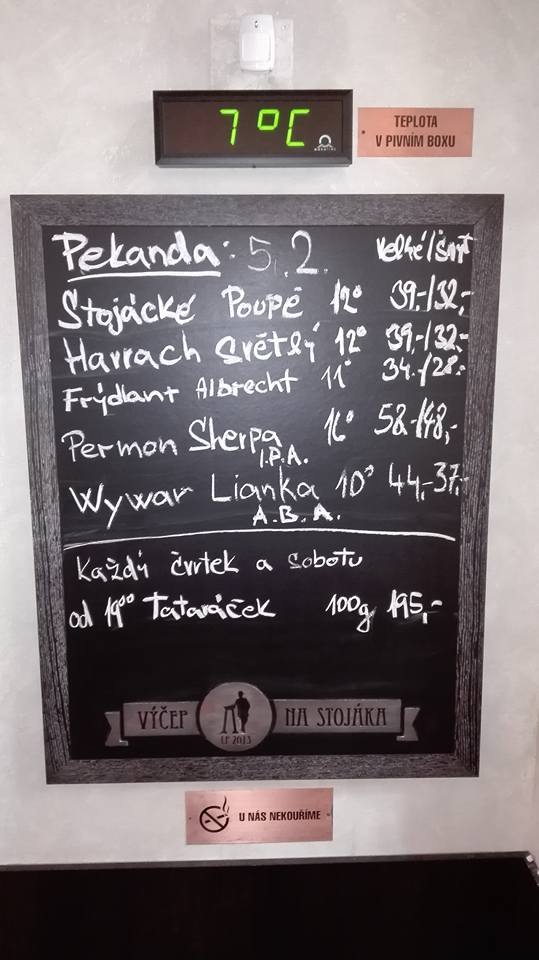 7°C
TEPLOTA
V PIVNÍM BOXU
Pekanda: 5.2. velké/šnyt
Stojácké Poupě 12° 39.-/32,-
Harrach Světlý 12° 39,-/32,-
Frýdlant Albrecht 11° 34.-/28.-
Permon Sherpa 16° 58.-/48,-
I.P.A.
Wywar Lianka 10° 44.-37,-
A.B.A.
Každý čvrtek a sobotu
od 19⁰⁰ Tataráček 100g 195,-
VÝČEP NA STOJÁKA
LP 2013
U NÁS NEKOUŘÍME